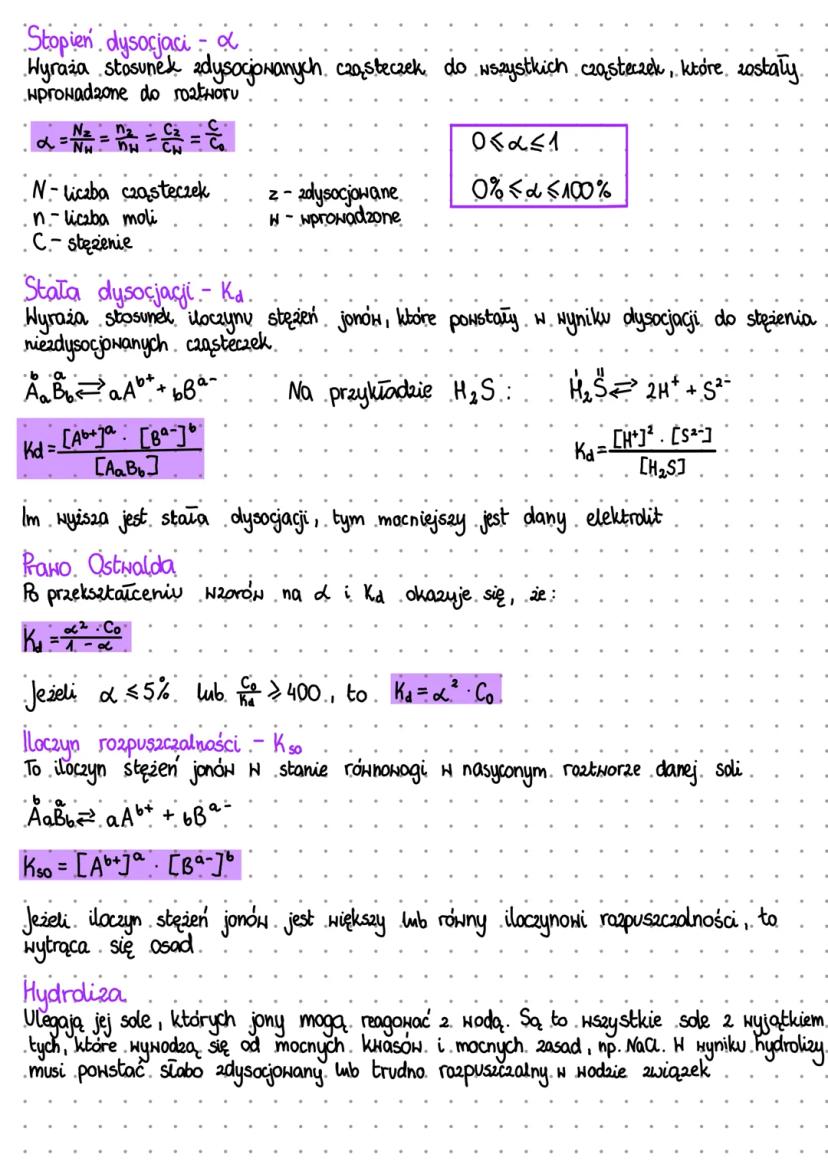 Stopień dysocjaci - α
Wyraża stosunek zdysocjowanych cząsteczek do wszystkich cząsteczek, które zostały
wprowadzone do roztworu
α = Nz/Nw = nz/nw = Cz/Cw = C/C₀
0 ⩽ α ⩽ 1
0% ⩽ α ⩽ 100%
N - liczba cząsteczek z - zdysocjowane
n - liczba moli w - wprowadzone
C - stężenie
Stała dysocjacji - Kd
Wyraża stosunek iloczynu stężeń jonów, które powstały w wyniku dysocjacji do stężenia
niezdysocjowanych cząsteczek
b a AaBb ⇄ aAᵇ⁺ + bBᵃ⁻ Na przykładzie H₂S : I II H₂S ⇄ 2H⁺ + S²⁻
Kd = [Aᵇ⁺]ᵃ · [Bᵃ⁻]ᵇ / [AaBb] Kd = [H⁺]² · [S²⁻] / [H₂S]
Im wyższa jest stała dysocjacji, tym mocniejszy jest dany elektrolit
Prawo Ostwalda
Po przekształceniu wzorów na α i Kd okazuje się, że :
Kd = α² · C₀ / 1 - α
Jeżeli α ⩽ 5% lub C₀/Kd ⩾ 400, to Kd = α² · C₀
Iloczyn rozpuszczalności - Kso
To iloczyn stężeń jonów w stanie równowagi w nasyconym roztworze danej soli
b a AaBb ⇄ aAᵇ⁺ + bBᵃ⁻
Kso = [Aᵇ⁺]ᵃ · [Bᵃ⁻]ᵇ
Jeżeli iloczyn stężeń jonów jest większy lub równy iloczynowi rozpuszczalności, to
wytrąca się osad
Hydroliza
Ulegają jej sole, których jony mogą reagować z wodą. Są to wszystkie sole z wyjątkiem
tych, które wywodzą się od mocnych kwasów i mocnych zasad, np. NaCl. W wyniku hydrolizy
musi powstać słabo zdysocjowany lub trudno rozpuszczalny w wodzie związek